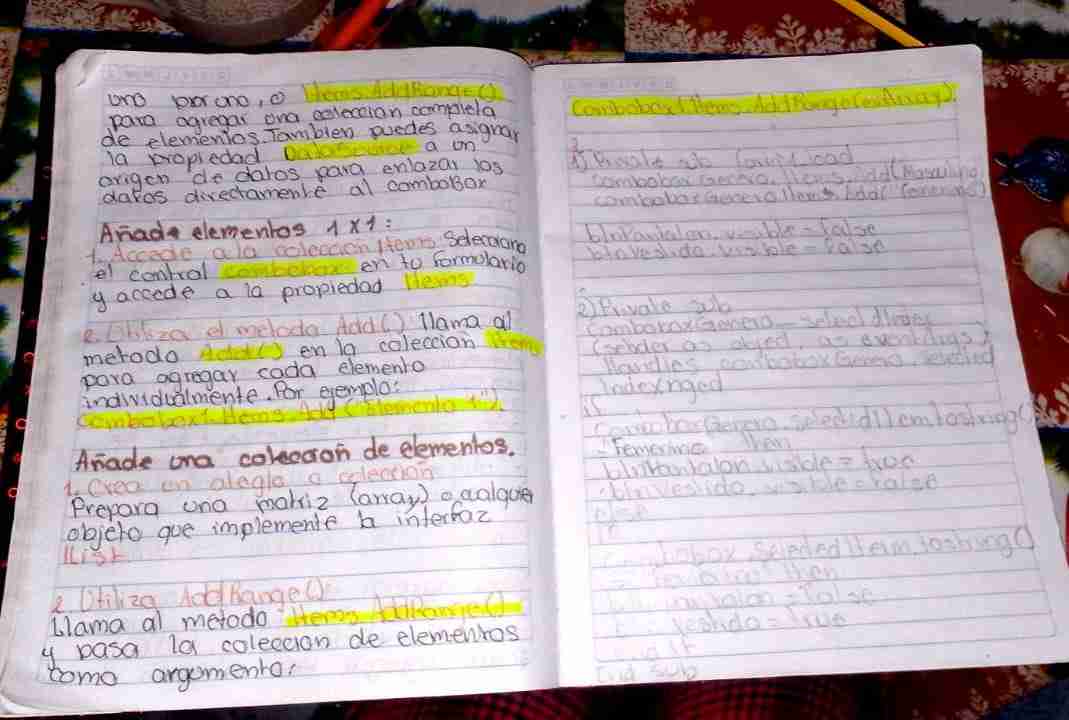 uno por uno, o Items.AddRange()
para agregar una coleccion completa
de elementos. Tambien puedes asignar
la propiedad DataSource a un
origen de datos para enlazar los
datos directamente al comboBox
Añade elementos 1x1:
1. Accede a la coleccion Items Selecciona
el control combobox en tu formulario
y accede a la propiedad Items
2. Utiliza el metodo Add() llama al
metodo Add() en la coleccion Items
para agregar cada elemento
individualmente. Por ejemplo:
Combobox1.Items.Add("Elemento 1")
Añade una coleccion de elementos.
1. Crea un aleglo o coleccion
Prepara una matriz (array) o cualquier
objeto que implemente la interfaz
IList
2. Utiliza AddRange()
Llama al método Items.AddRange()
y pasa la coleccion de elementos
como argumento:
Combobox1.Items.AddRange(miArray)
1) Private sub Load
comboboxGenero.Items.Add(Masculino)
comboboxGenero.Items.Add("Femenino")
btnPantalon.visible = false
btnVestido.visible = false
2) Private sub
ComboboxGenero_
(sender as object, as eventArgs)
Handles comboboxGenero.selected
Indexnged
if
ComboboxGenero.selectedItem.tostring()
= Femenino Then
btnPantalon.visible = true
btnVestido.visible = false
else
if
Combobox.SelectedItem.tostring()
= then
pantalon = false
vestido = True
End if
End sub